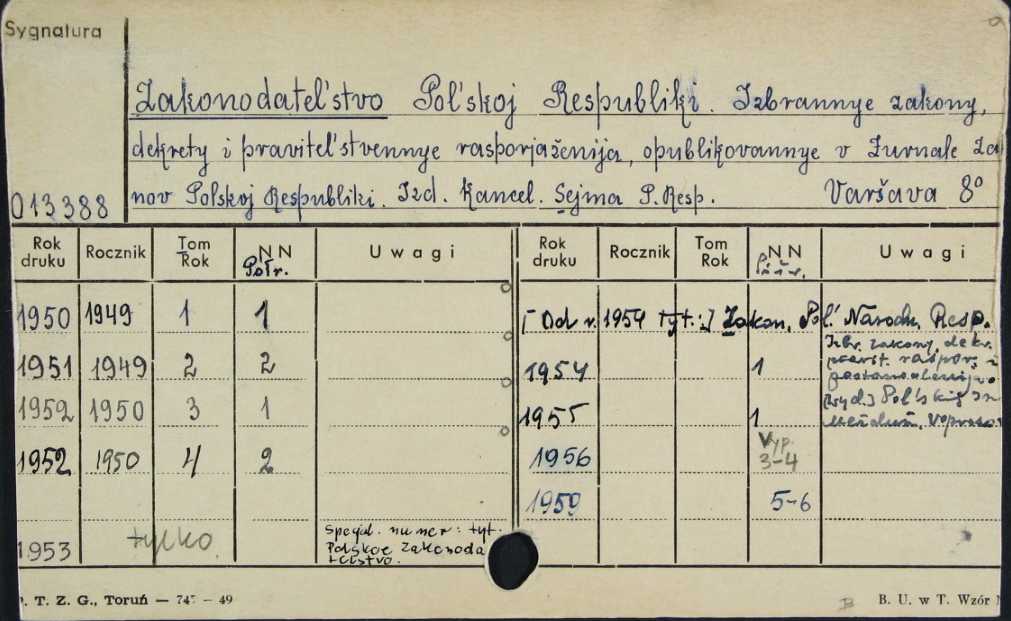 Sygnatura
Zakonodatel'stvo Pol'skoj Respubliki. Izbrannye zakony,
dekrety i pravitel'stvennye rasporjaženija, opublikovannye v Žurnale Za
013388 nov Polskoj Respubliki. Izd. Kancel. Sejma P. Resp. Varšava 8°
Rok druku Rocznik Tom Rok NN Połr. Uwagi Rok druku Rocznik Tom Rok NN Uwagi
1950 1949 1 1 [Od r. 1954 tyt.:] Zakon. Pol. Narodn. Resp.
Izbr. zakony, dekr.
1951 1949 2 2 1954 1 raspor. i
postanovlenija
1952 1950 3 1 1955 1 [Wyd.] Pol'skij In
Meždun. Voprosov
1952 1950 4 2 1956 Vyp. 3-4
1959 5-6
1953 tylko Specjal. numer: tyt.
Polskoe zakonoda
telstvo.
P. T. Z. G., Toruń — 747 — 49 B. U. w T. Wzór